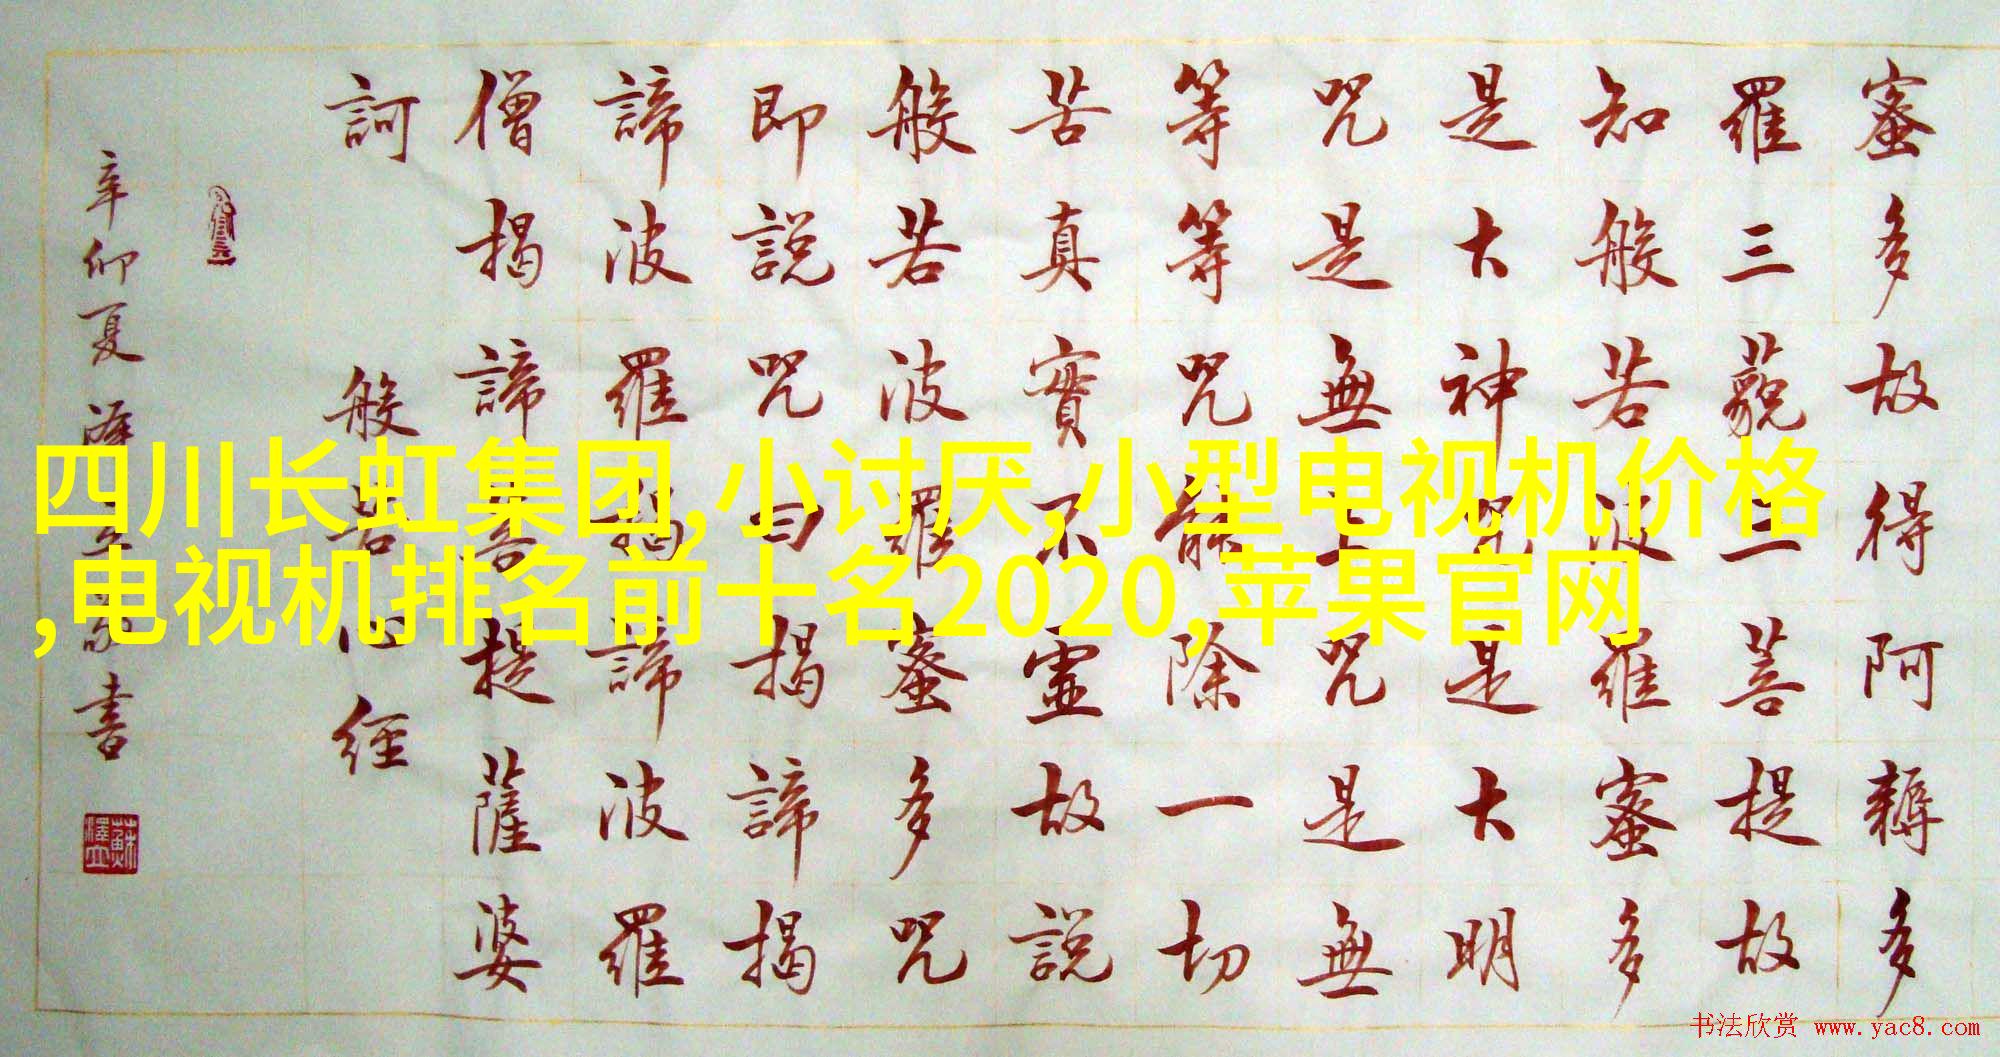 蜜多故得阿耨多
羅三藐三菩提故
知般若波羅蜜多
是大神咒是大明
咒是無上咒是無
等等咒能除一切
苦真實不虛故說
般若波羅蜜多咒
即說咒曰揭諦揭
諦波羅揭諦波羅
僧揭諦菩提薩婆
訶 般若心經
辛卯夏澤立敬書
蘇澤立
四川长虹集团,小讨厌,小型电视机价格
,电视机排名前十名2020,苹果官网
书法欣赏 www.yac8.com